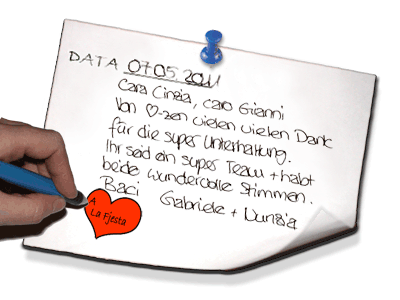 DATA 07.05.2011
Cara Cinzia, caro Gianni
Von ♡-zen vielen vielen Dank
für die super Unterhaltung.
Ihr seid ein super Team + habt
beide wundervolle Stimmen.
Baci Gabriele + Nunzia
A
La Fiesta